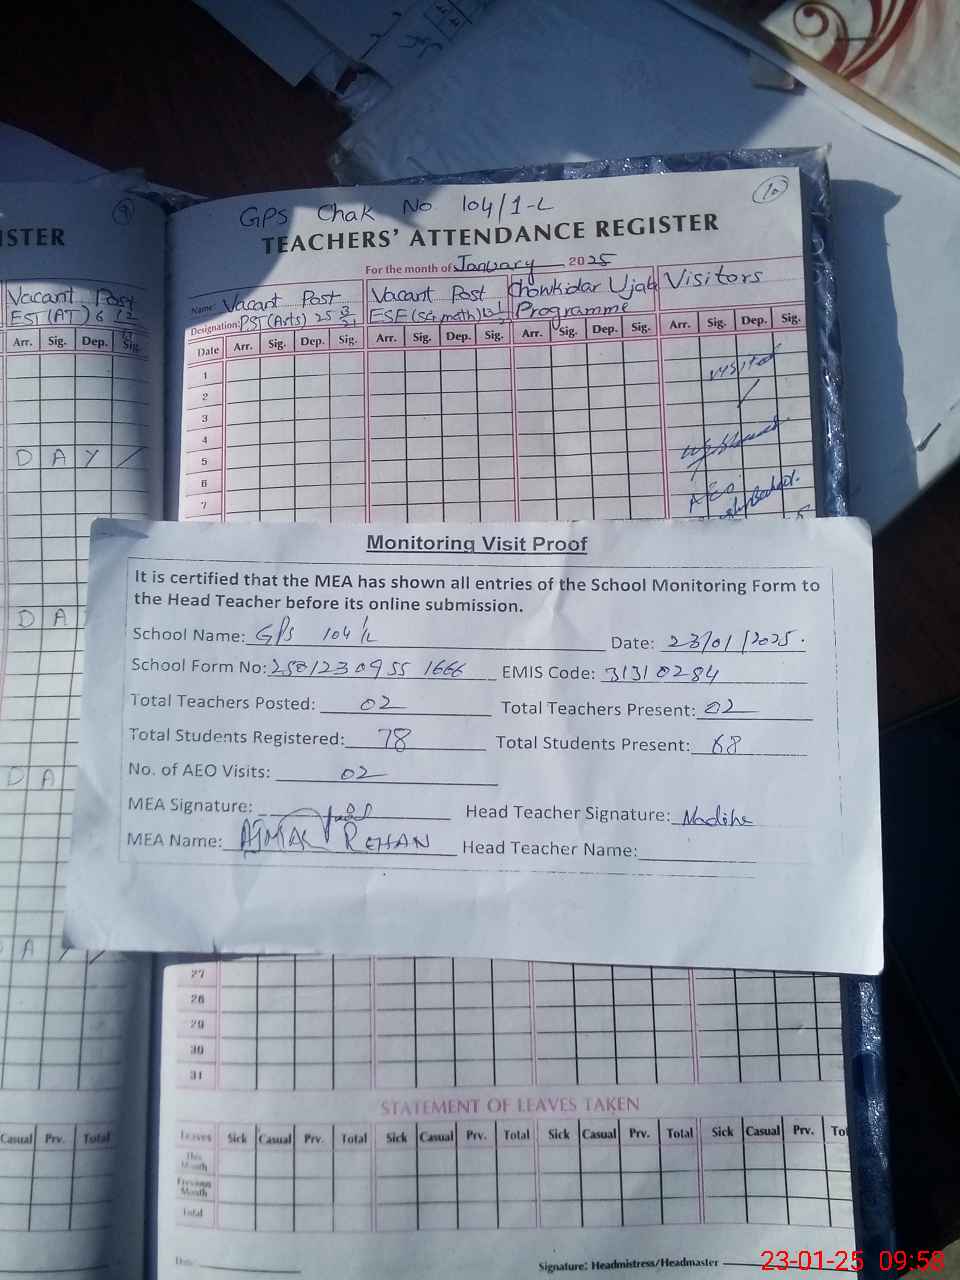 9
10
GPS Chak No 104/1-L
ISTER
TEACHERS' ATTENDANCE REGISTER
For the month of January 2025
Vacant Post
EST (AT) 6
Name: Vacant Post
Designation: PST (Arts) 25
Vacant Post
Chowkidar Ujala
Programme
Visitors
Arr. Sig. Dep. Sig.
Date Arr. Sig. Dep. Sig. Arr. Sig. Dep. Sig. Arr. Sig. Dep. Sig. Arr. Sig. Dep. Sig.
1
2
3
4
5
6
7
visited
AEO
D A Y
D A
D A
A
Monitoring Visit Proof
It is certified that the MEA has shown all entries of the School Monitoring Form to
the Head Teacher before its online submission.
School Name: GPS 104/1L Date: 23/01/2025.
School Form No: 25012309551666 EMIS Code: 31310284
Total Teachers Posted: 02 Total Teachers Present: 02
Total Students Registered: 78 Total Students Present: 68
No. of AEO Visits: 02
MEA Signature: Head Teacher Signature: Nadihe
MEA Name: AJMAL REHAN Head Teacher Name:
27
28
29
30
31
STATEMENT OF LEAVES TAKEN
Casual Prv. Total
Leaves Sick Casual Prv. Total Sick Casual Prv. Total Sick Casual Prv. Total Sick Casual Prv. To
This Month
Previous Month
Total
Date
Signature: Headmistress/Headmaster
23-01-25 09:58